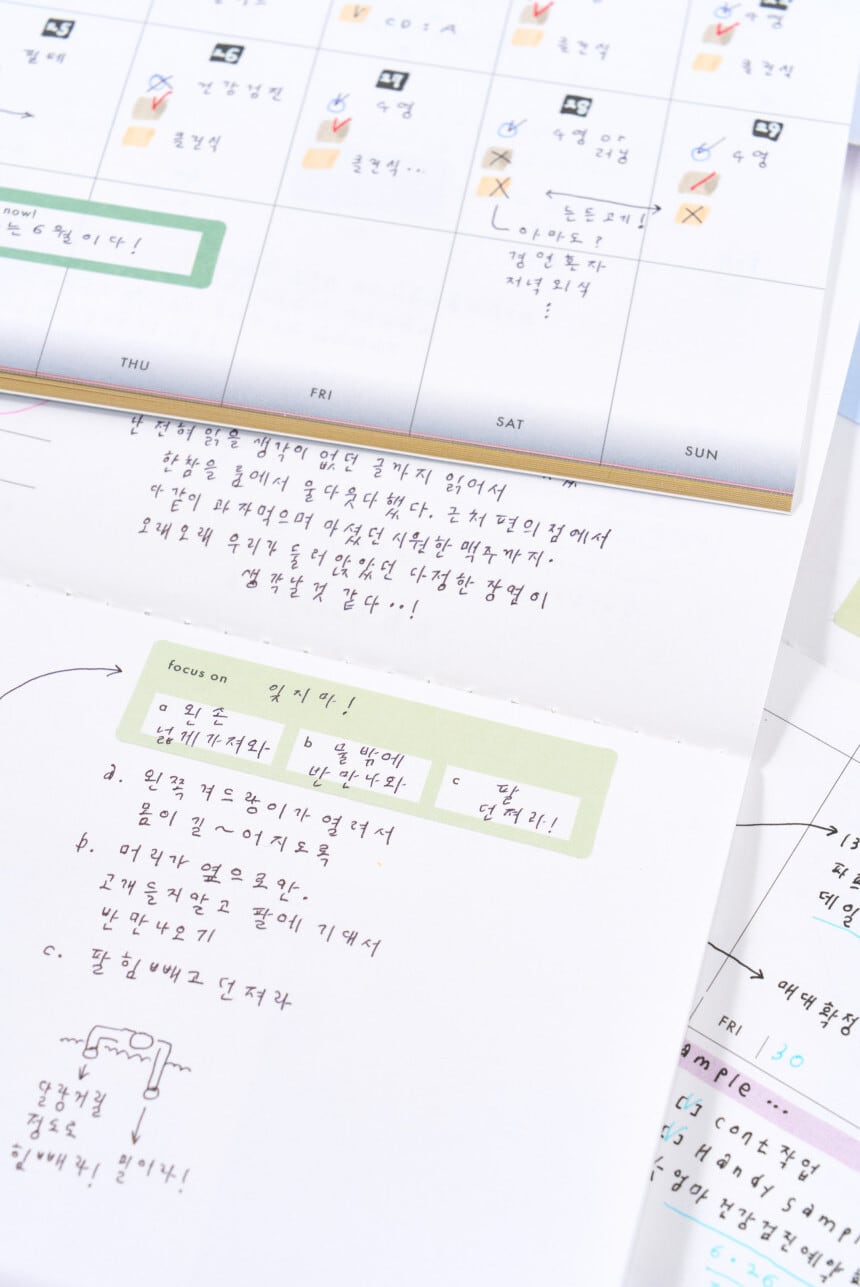 25
필테
26
건강검진
클린식
CD : A
27
수영
클린식..
클린식
28
수영 or
러닝
는 든 고기!
아마도?
저녁외식
29
수영
클린식
now!
는 6월이다!
THU
FRI
SAT
SUN
난 전혀 읽을 생각이 없던 글까지 읽어서
한참을 룸에서 울다웃다했다. 근처 편의점에서
다같이 과자먹으며 마셨던 시원한 맥주까지.
오래오래 우리가 둘러앉았던 다정한 장면이
생각날것 같다..!
focus on
잊지마!
a 왼손
넓게가져와
b 물밖에
반만나와
c 팔
던져라!
a. 왼쪽 겨드랑이가 열려서
몸이 길~어지도록
b. 머리가 옆으로만.
고개들지말고 팔에 기대서
반만나오기
c. 팔힘빼고 던져라
달랑거릴
정도로
힘빼라!
밀어라!
데일
매대확정
FRI
30
ample ...
[v] cont 작업
[v] Handy sampl
엄마 건강검진예약